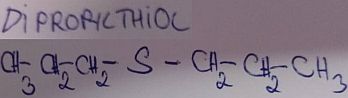 DiPROPYLTHIOL
CH₃-CH₂CH₂-S-CH₂-CH₂-CH₃